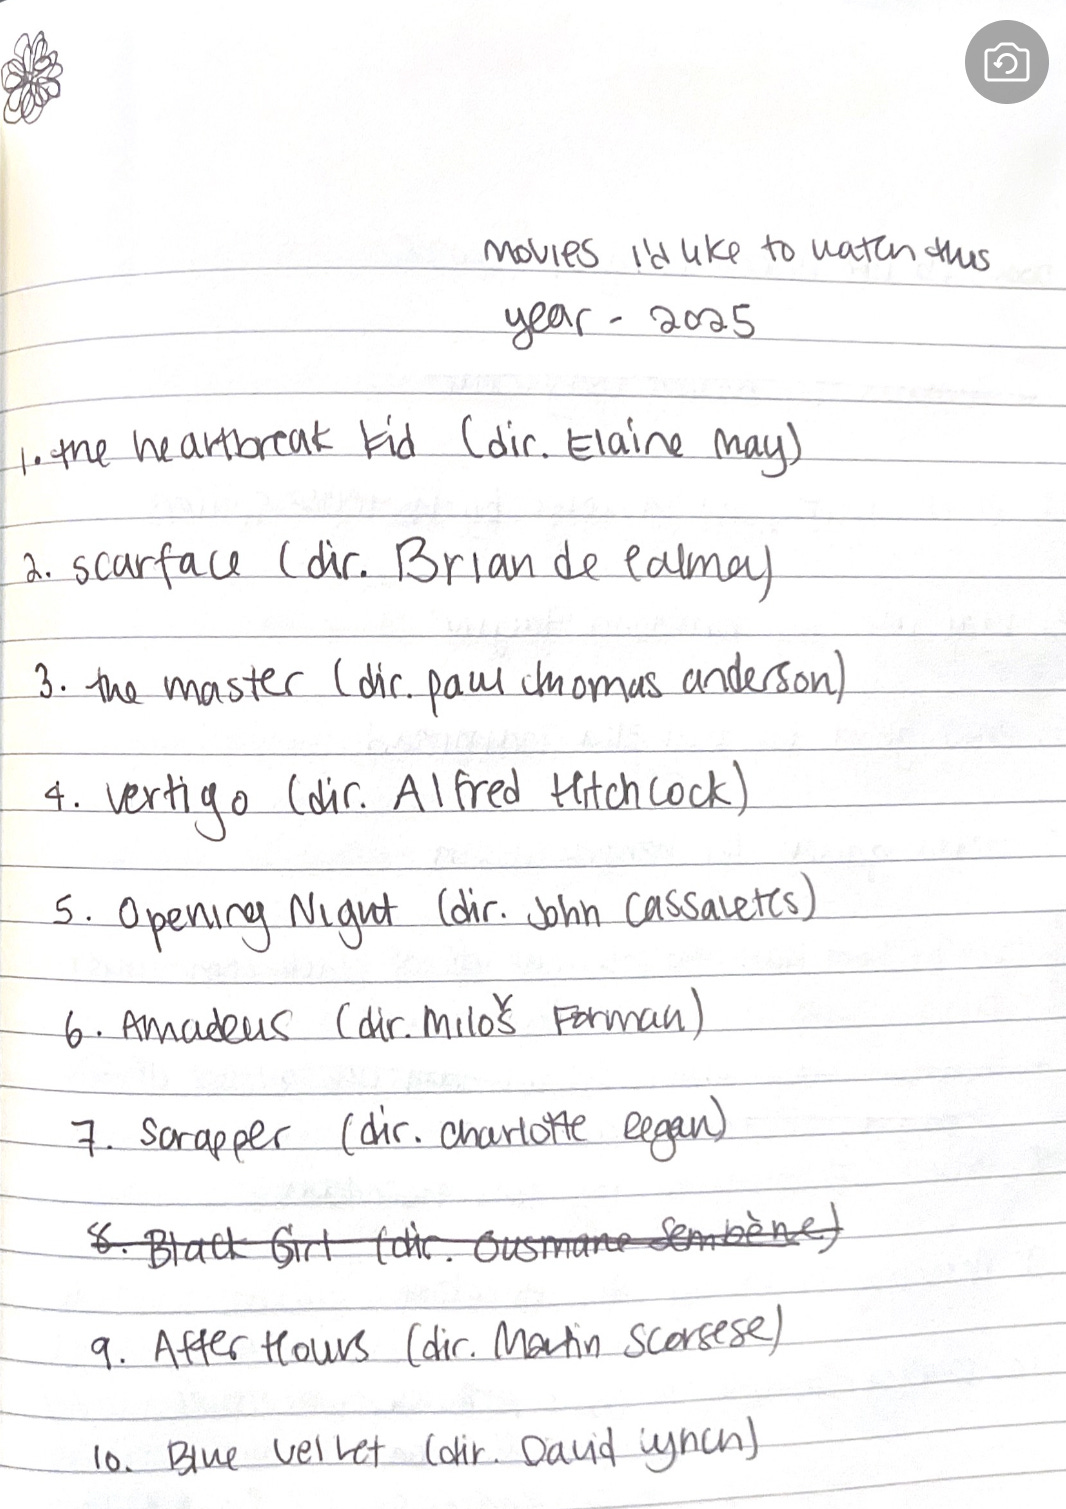 movies i'd like to watch this
year - 2025
1. the heartbreak kid (dir. Elaine May)
2. scarface (dir. Brian de Palma)
3. the master (dir. paul thomas anderson)
4. vertigo (dir. Alfred Hitchcock)
5. Opening Night (dir. John Cassavetes)
6. Amadeus (dir. Miloš Forman)
7. Scrapper (dir. Charlotte Regan)
8. Black Girl (dir. Ousmane Sembène)
9. After Hours (dir. Martin Scorsese)
10. Blue Velvet (dir. David Lynch)